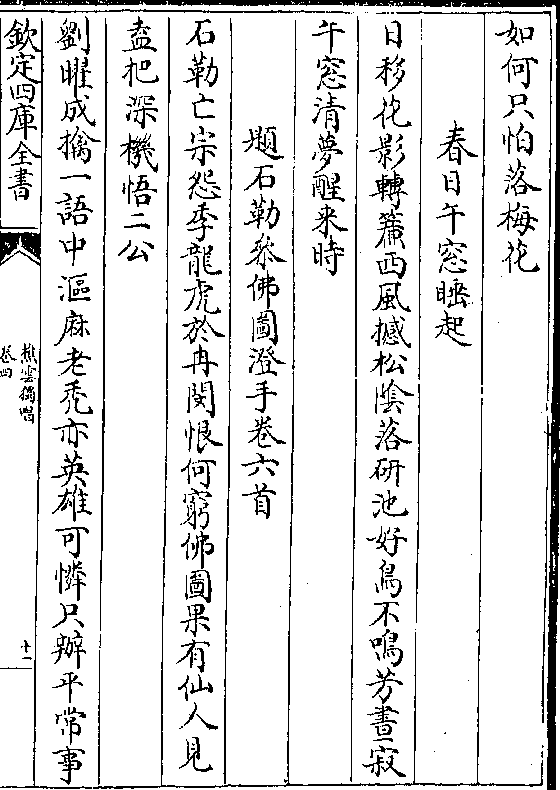 如何只怕落梅花
春日午窓睡起
日移花影轉簾西風撼松隂落研池好鳥不鳴芳晝寂
午窓清夢醒来時
題石勒叅佛圖澄手卷六首
石勒亡宗怨季龍虎於冉閔恨何窮佛圖果有仙人見
盍把深機悟二公
劉曜成擒一語中漚麻老秃亦英雄可憐只辦平常事
欽定四庫全書
樵雲獨唱
卷四
十一